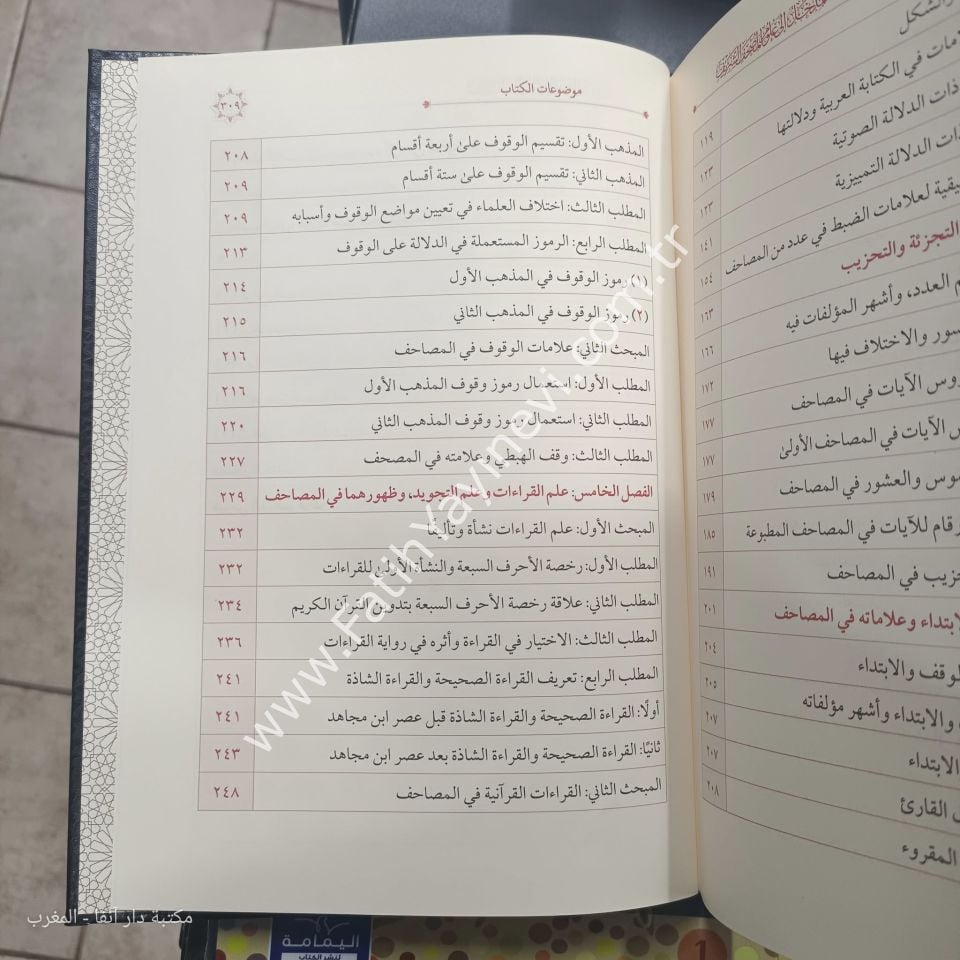 والشكل
علامات في الكتابة العربية ودلالتها ١١٩
ذات الدلالة الصوتية ١٢٣
ذات الدلالة التمييزية ١٢٣
لعلامات الضبط في عدد من المصاحف ١٤١
التجزئة والتحزيب ١٥٤
العدد، وأشهر المؤلفات فيه ١٦٣
والاختلاف فيها ١٦٦
الآيات في المصاحف ١٧٢
الآيات في المصاحف الأولى ١٧٧
١٧٧
والعشور في المصاحف ١٧٩
للآيات في المصاحف المطبوعة ١٨٥
في المصاحف ١٩١
وعلاماته في المصاحف ٢٠١
الوقف والابتداء ٢٠٤
٢٠٥
والابتداء وأشهر مؤلفاته ٢٠٧
الابتداء ٢٠٧
القارئ ٢٠٨
المقروء
موضوعات الكتاب
٣٠٩
المذهب الأول: تقسيم الوقوف على أربعة أقسام ٢٠٨
المذهب الثاني: تقسيم الوقوف على ستة أقسام ٢٠٩
المطلب الثالث: اختلاف العلماء في تعيين مواضع الوقوف وأسبابه ٢٠٩
المطلب الرابع: الرموز المستعملة في الدلالة على الوقوف ٢١٣
(١) رموز الوقوف في المذهب الأول ٢١٤
(٢) رموز الوقوف في المذهب الثاني ٢١٥
المبحث الثاني: علامات الوقوف في المصاحف ٢١٦
المطلب الأول: استعمال رموز وقوف المذهب الأول ٢١٦
المطلب الثاني: استعمال رموز وقوف المذهب الثاني ٢٢٠
المطلب الثالث: وقف الهبطي وعلامته في المصحف ٢٢٧
الفصل الخامس: علم القراءات وعلم التجويد، وظهورهما في المصاحف ٢٢٩
المبحث الأول: علم القراءات نشأة وتأليفًا ٢٣٢
المطلب الأول: رخصة الأحرف السبعة والنشأة الأولى للقراءات ٢٣٢
المطلب الثاني: علاقة رخصة الأحرف السبعة بتدوين القرآن الكريم ٢٣٤
المطلب الثالث: الاختيار في القراءة وأثره في رواية القراءات ٢٣٦
المطلب الرابع: تعريف القراءة الصحيحة والقراءة الشاذة ٢٤١
أولًا: القراءة الصحيحة والقراءة الشاذة قبل عصر ابن مجاهد ٢٤١
ثانيًا: القراءة الصحيحة والقراءة الشاذة بعد عصر ابن مجاهد ٢٤٣
المبحث الثاني: القراءات القرآنية في المصاحف ٢٤٨
www.FatihYayinevi.com.tr
مكتبة دار آنفا - المغرب
اليمامة
لنشر الكتاب
1